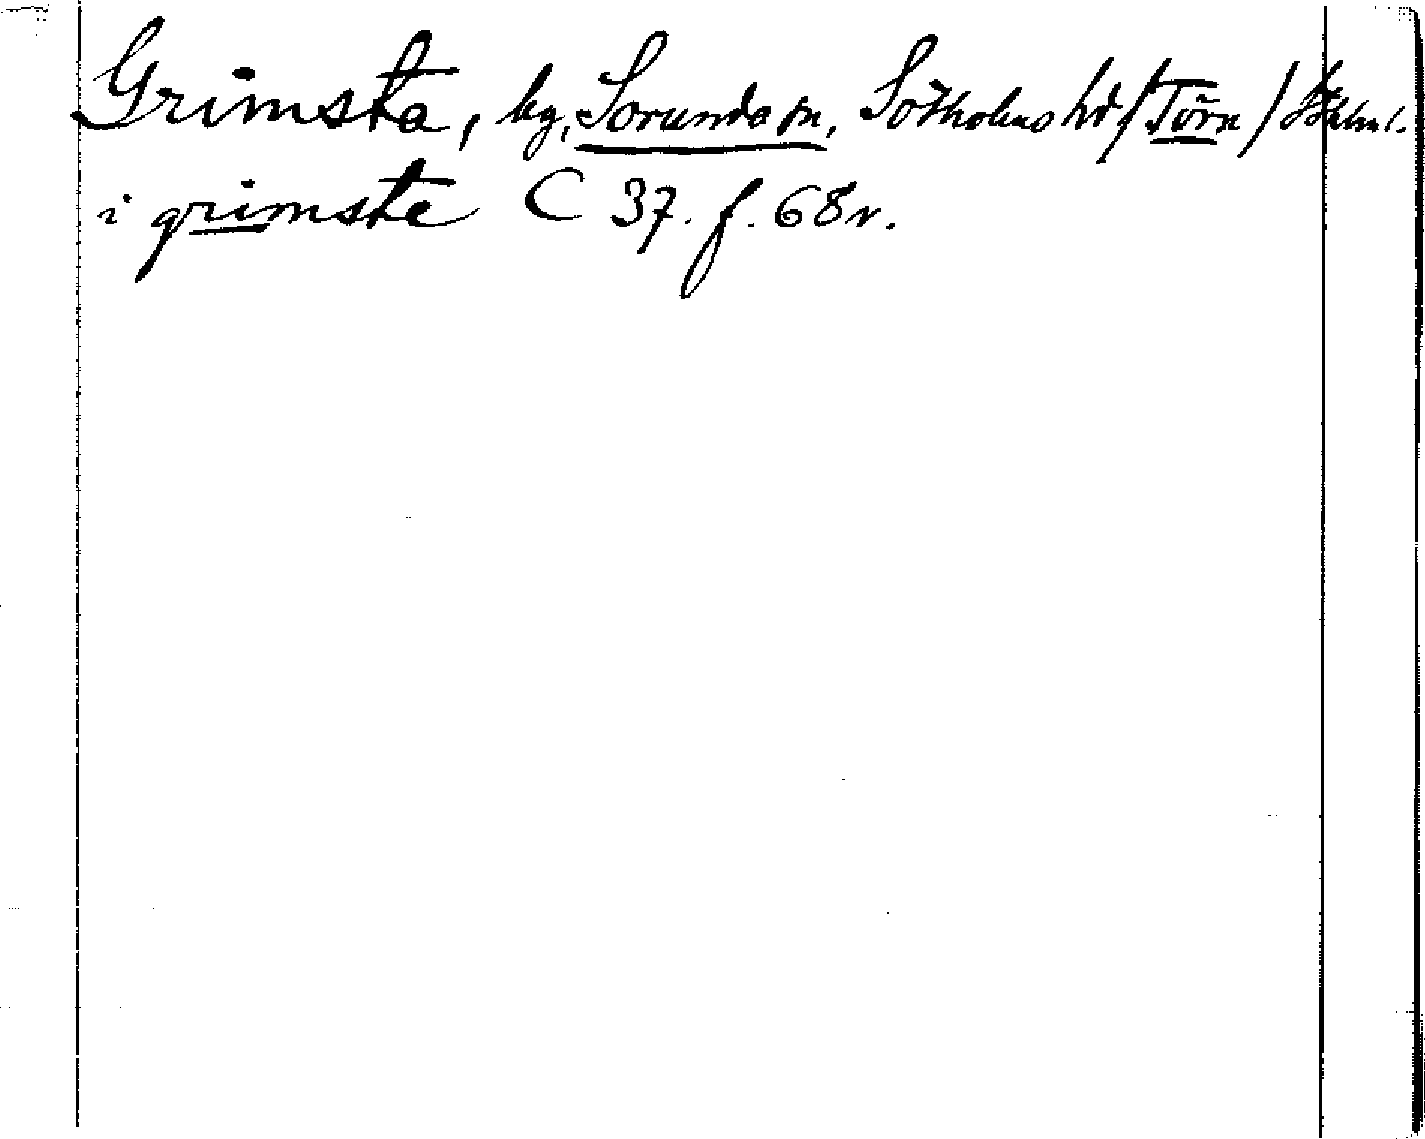 Grimsta, by, Sorunda sn, Sotholms hd /Törn/ Sthlms l.
i grimste C 37. f. 68 v.